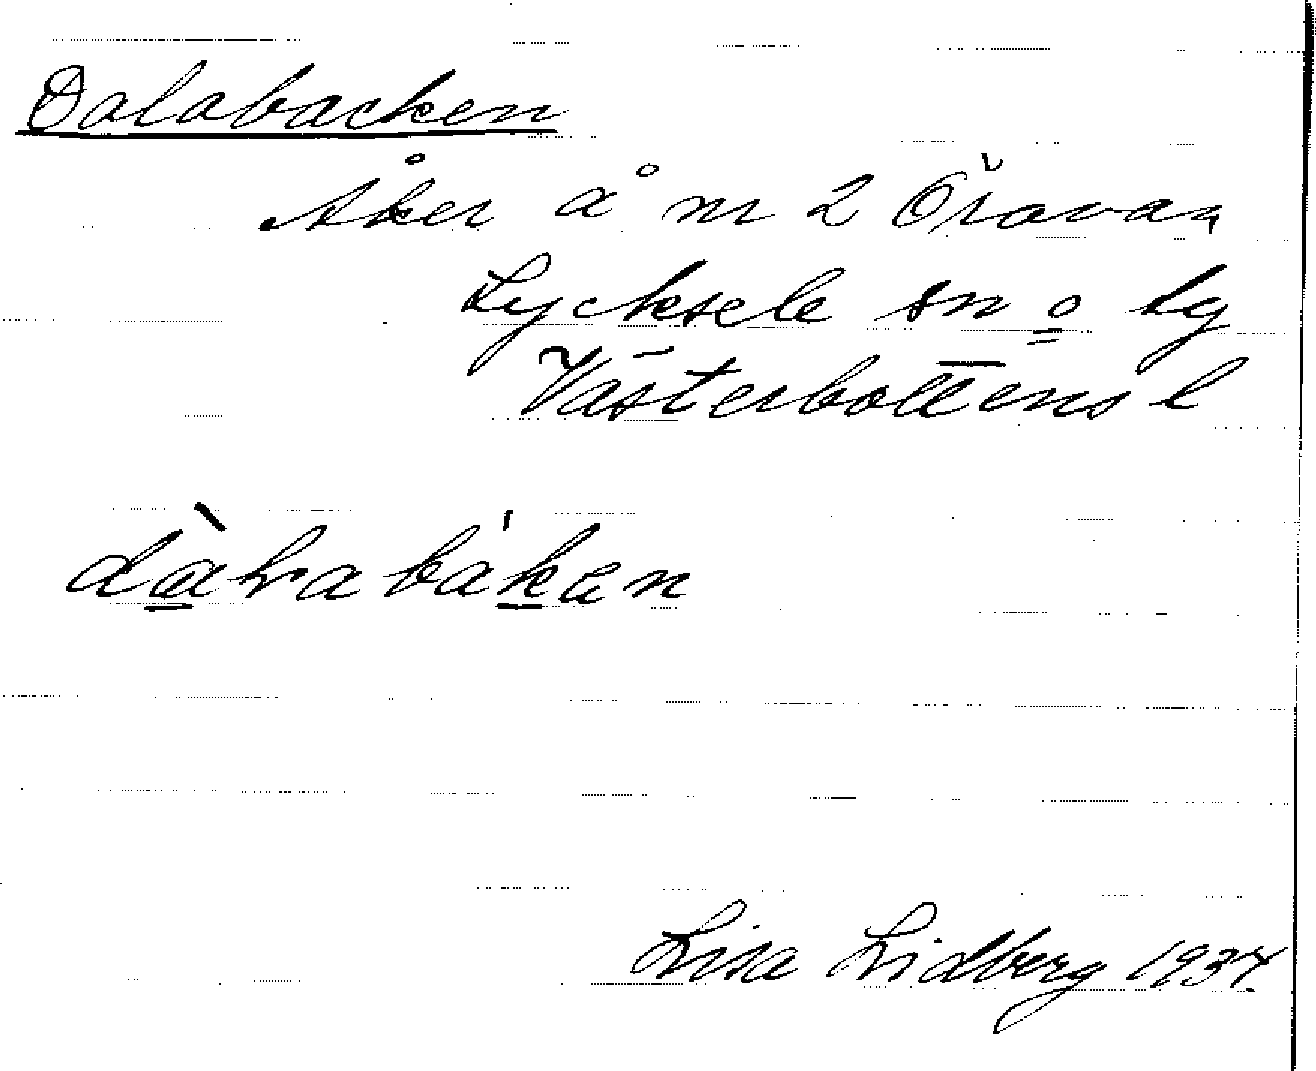 Dalabacken
Åker å nr 2 Öravan
Lycksele sn o lg
Västerbottens l
dàlrabákən
Lisa Lidberg 1934.